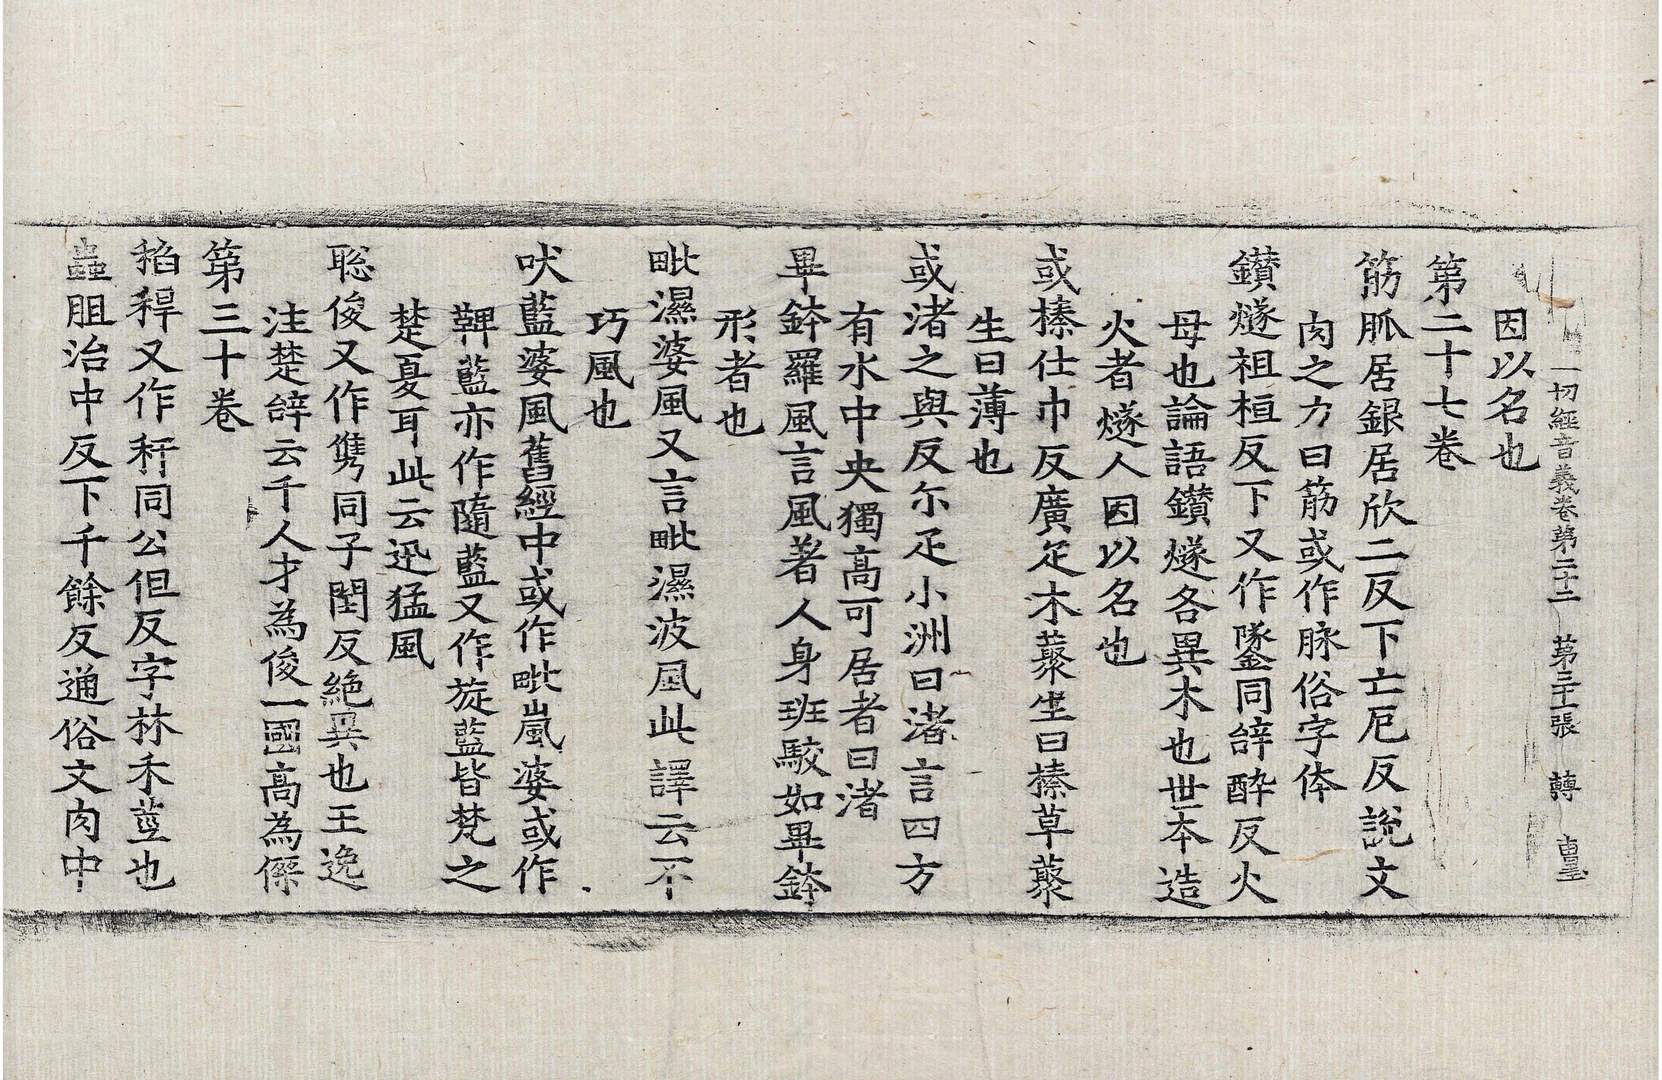 一切經音義卷第二十二 第三十張 轉
因以名也
第二十七卷
筋脈居銀居欣二反下亡厄反說文
肉之力曰筋或作脉俗字体
鑚燧祖桓反下又作鐆同辝醉反火
母也論語鑚燧各異木也世本造
火者燧人因以名也
或榛仕巾反廣疋木藂生曰榛草藂
生曰薄也
或渚之與反尓疋小洲曰渚言四方
有水中央獨高可居者曰渚
畢鉢羅風言風著人身班駮如畢鉢
形者也
毗濕婆風又言毗濕波風此譯云不
巧風也
吠藍婆風舊經中或作毗嵐婆或作
鞞藍亦作隨藍又作旋藍皆梵之
楚夏耳此云迅猛風
聡俊又作㑺同子閏反絶異也王逸
注楚辝云千人才為俊一國高為傑
第三十卷
稻稈又作秆同公但反字林禾莖也
蟲胆治中反下千餘反通俗文肉中